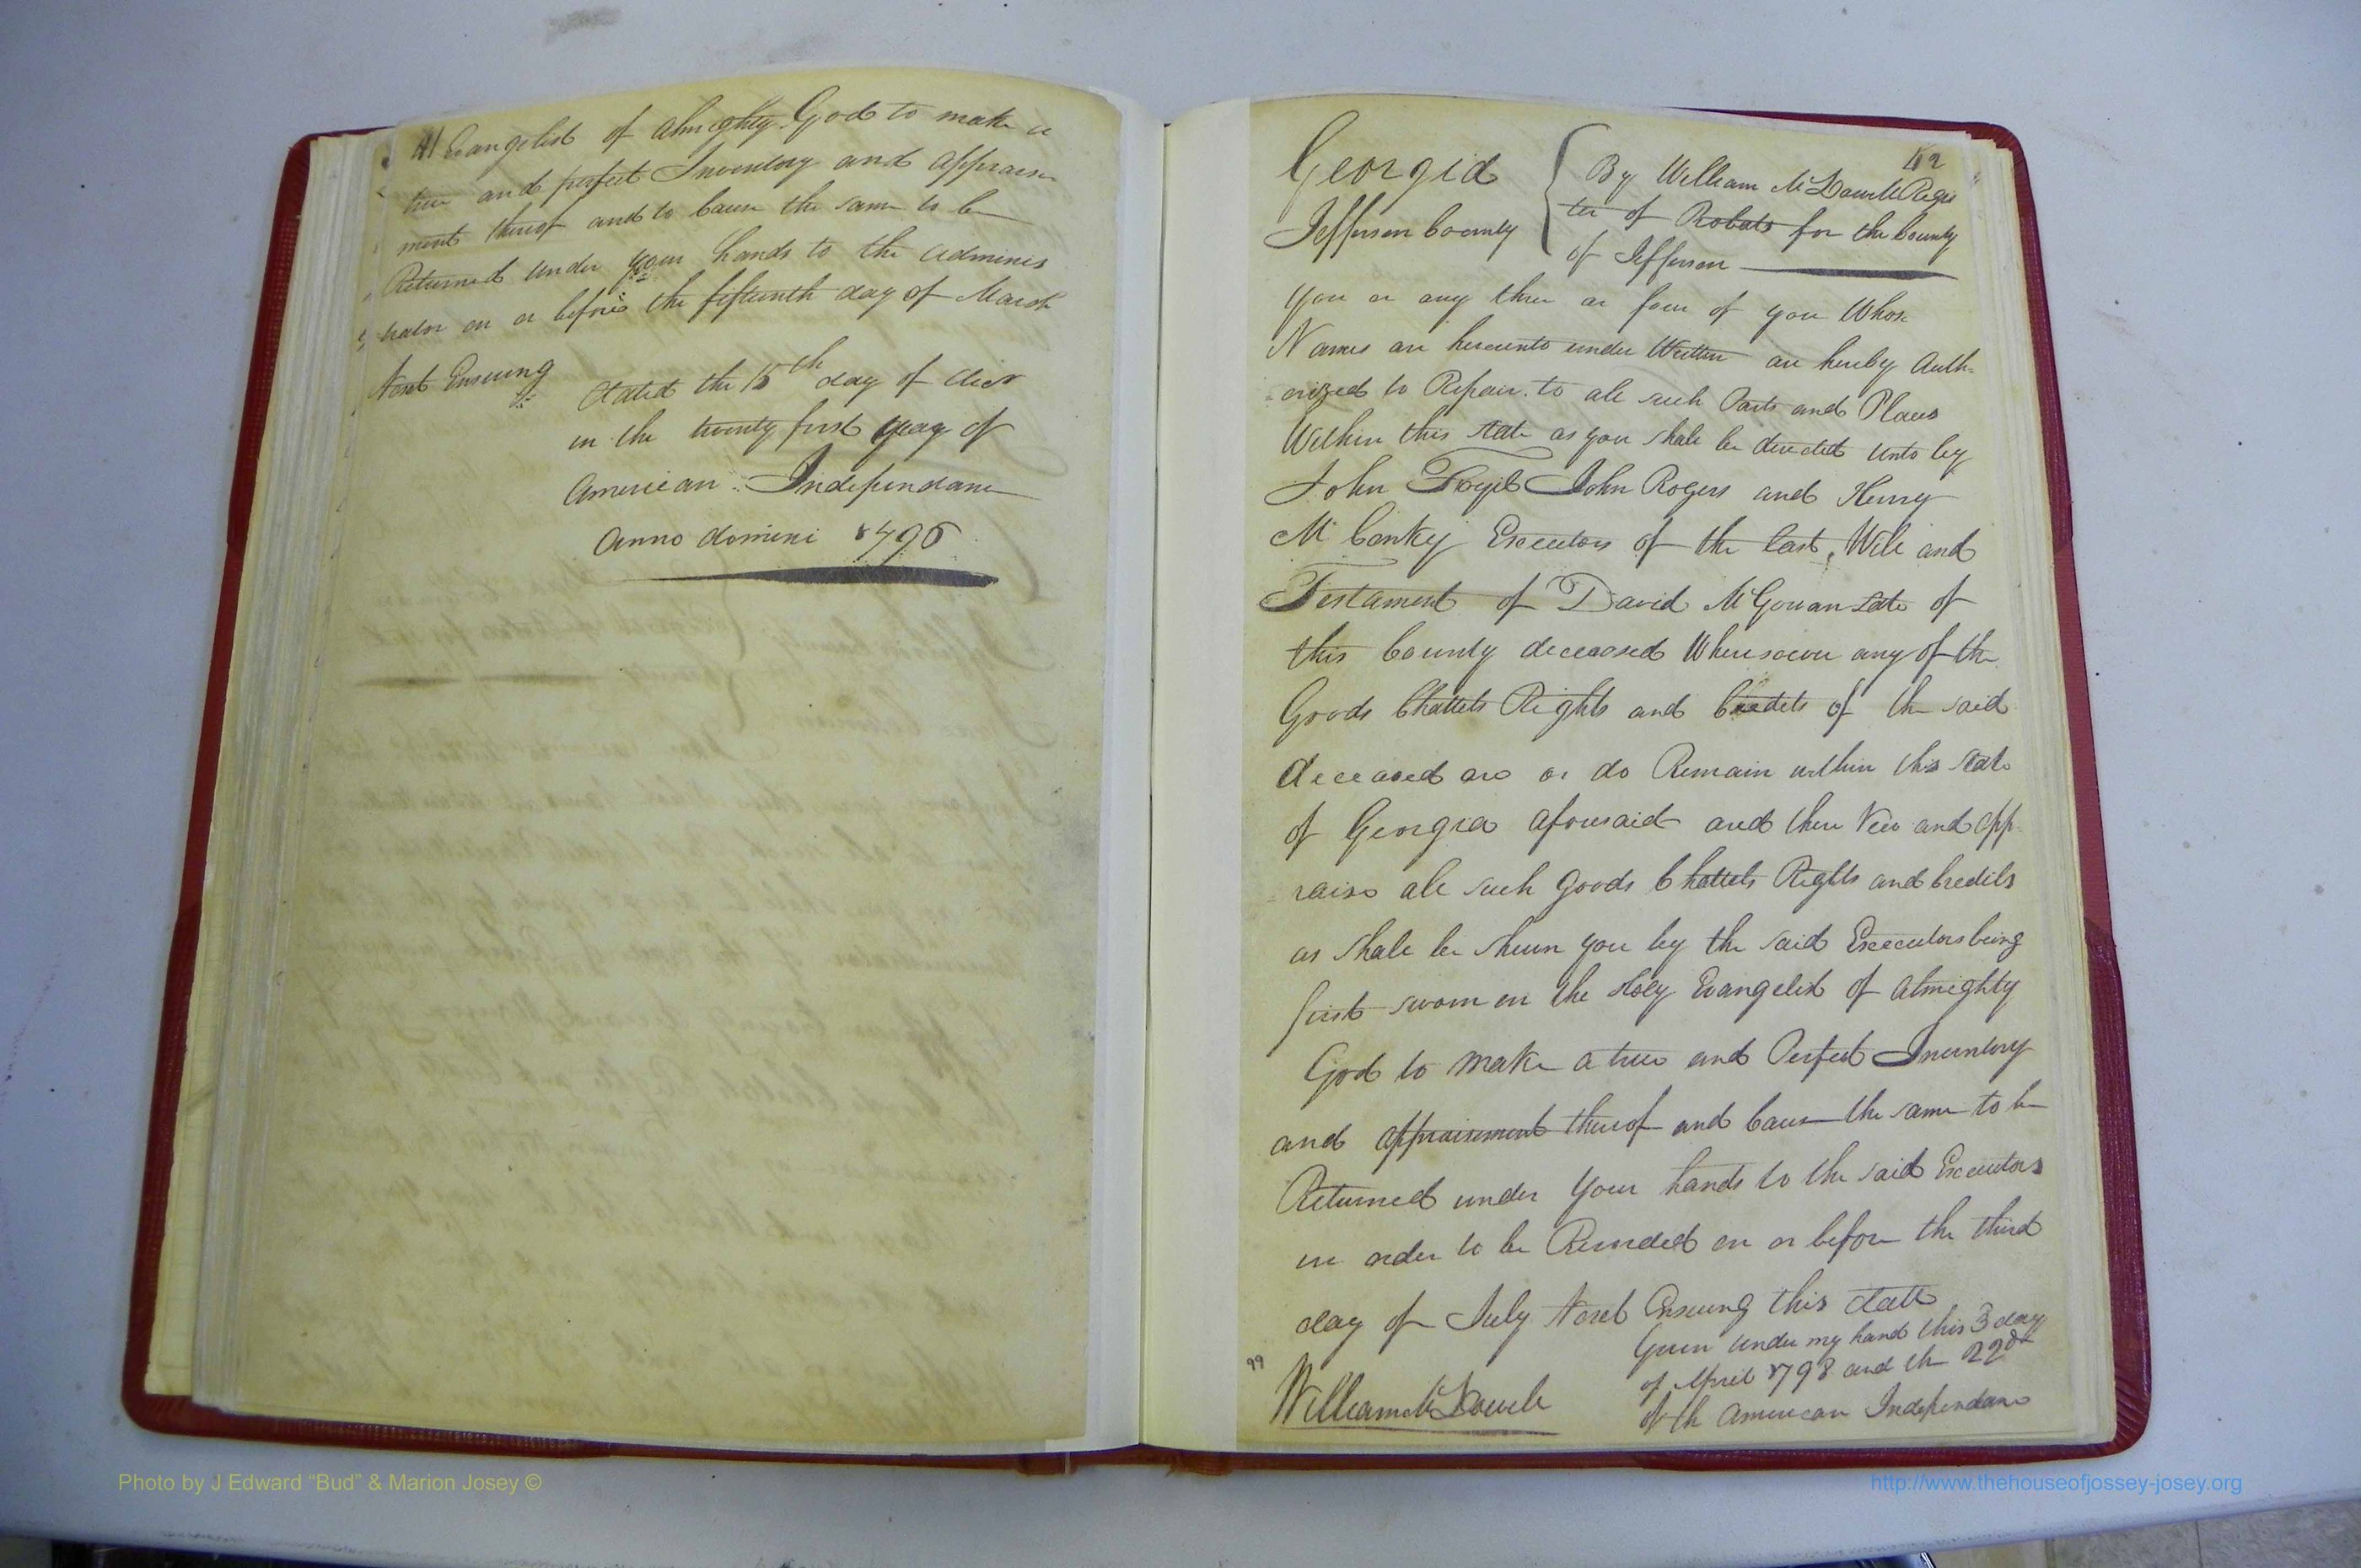 41 Evangelist of almighty God to make a
true and perfect Inventory and appraise
ment thereof and to Cause the same to be
Returned under your hands to the adminis
trator on or before the fifteenth day of March
Next Ensuing
Dated the 15th day of Decr
in the twenty first year of
American Independance
Anno domini 1796
42
Georgia
Jefferson County
By William McDowell Regis
ter of Probats for the County
of Jefferson
You or any three or four of you Whose
Names are hereunto under Written are hereby Auth-
orized to Repair to all such Parts and Places
Within this State as you shall be directed unto by
John John Rogers and Henry
McConky Executors of the last Will and
Testament of David McGowan Late of
this County deceased Wheresoever any of the
Goods Chattels Rights and Credits of the said
deceased are or do Remain within this State
of Georgia aforesaid and there View and app-
raise all such Goods Chattels Rights and Credits
as shall be shewn you by the said Executors being
first sworn on the Holy Evangelist of Almighty
God to make a true and Perfect Inventory
and appraisement thereof and Cause the same to be
Returned under Your hands to the said Executors
in order to be Recorded on or before the third
day of July Next Ensuing this date
Given under my hand this 3 day
of April 1798 and the 22d
of the American Independance
99
William McDowell
Photo by J Edward “Bud” & Marion Josey ©
http://www.thehouseofjossey-josey.org